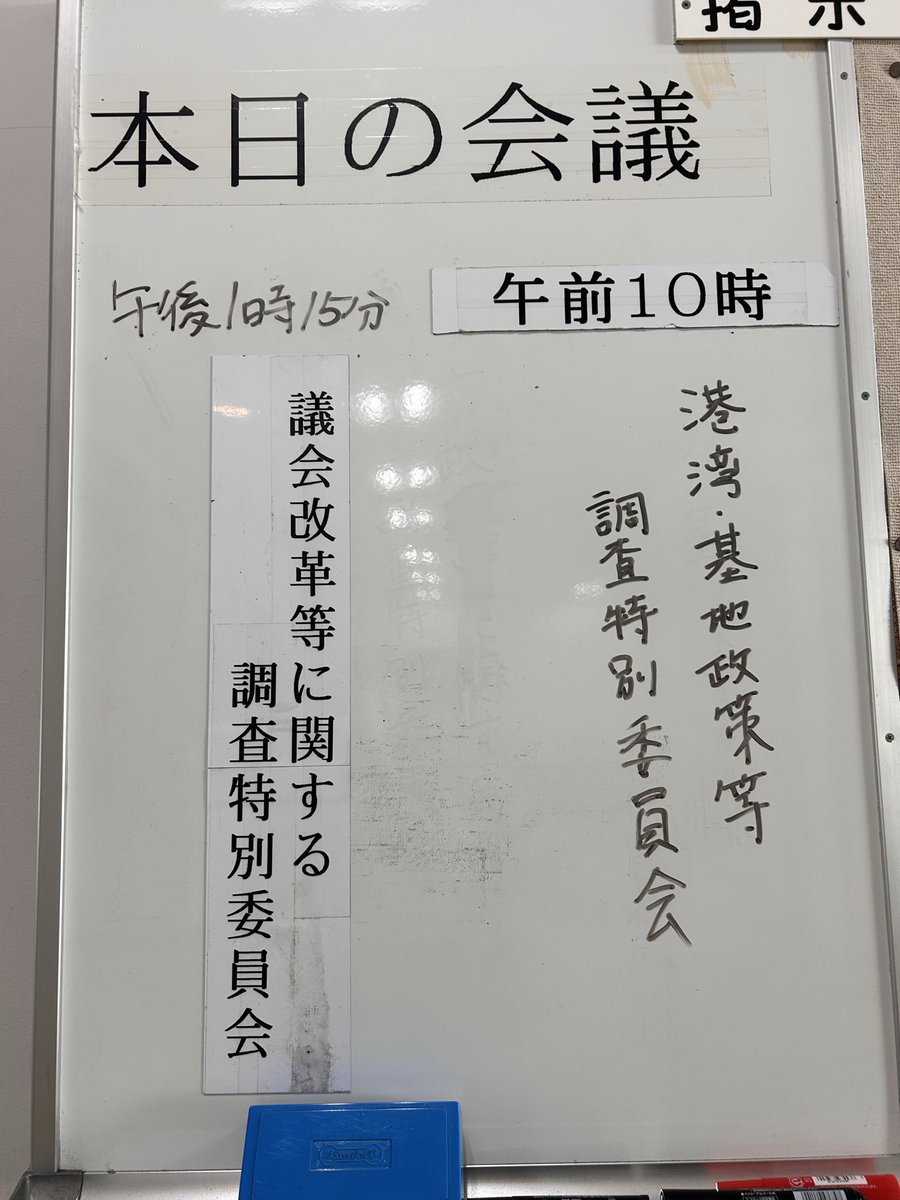 掲示
本日の会議
午前10時
港湾・基地政策等
調査特別委員会
午後1時15分
議会改革等に関する
調査特別委員会